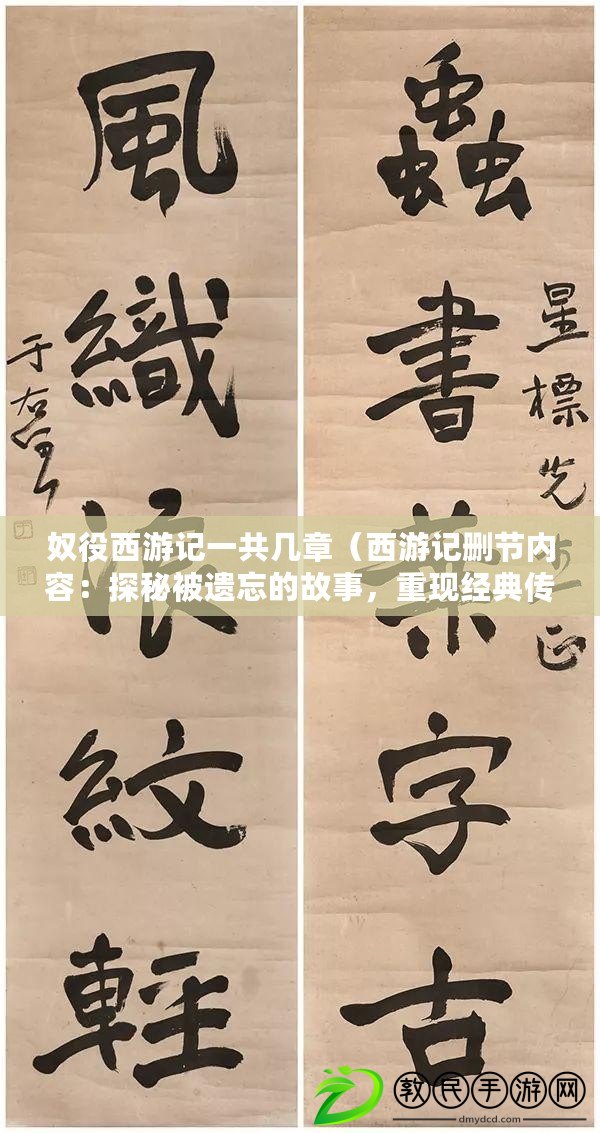 星標先生正
蟲書葉字古
風織浪紋輕
于右任
奴役西游记一共几章（西游记删节内
容：探秘被遗忘的故事，重现经典传
教民手游网
dmydcd.com